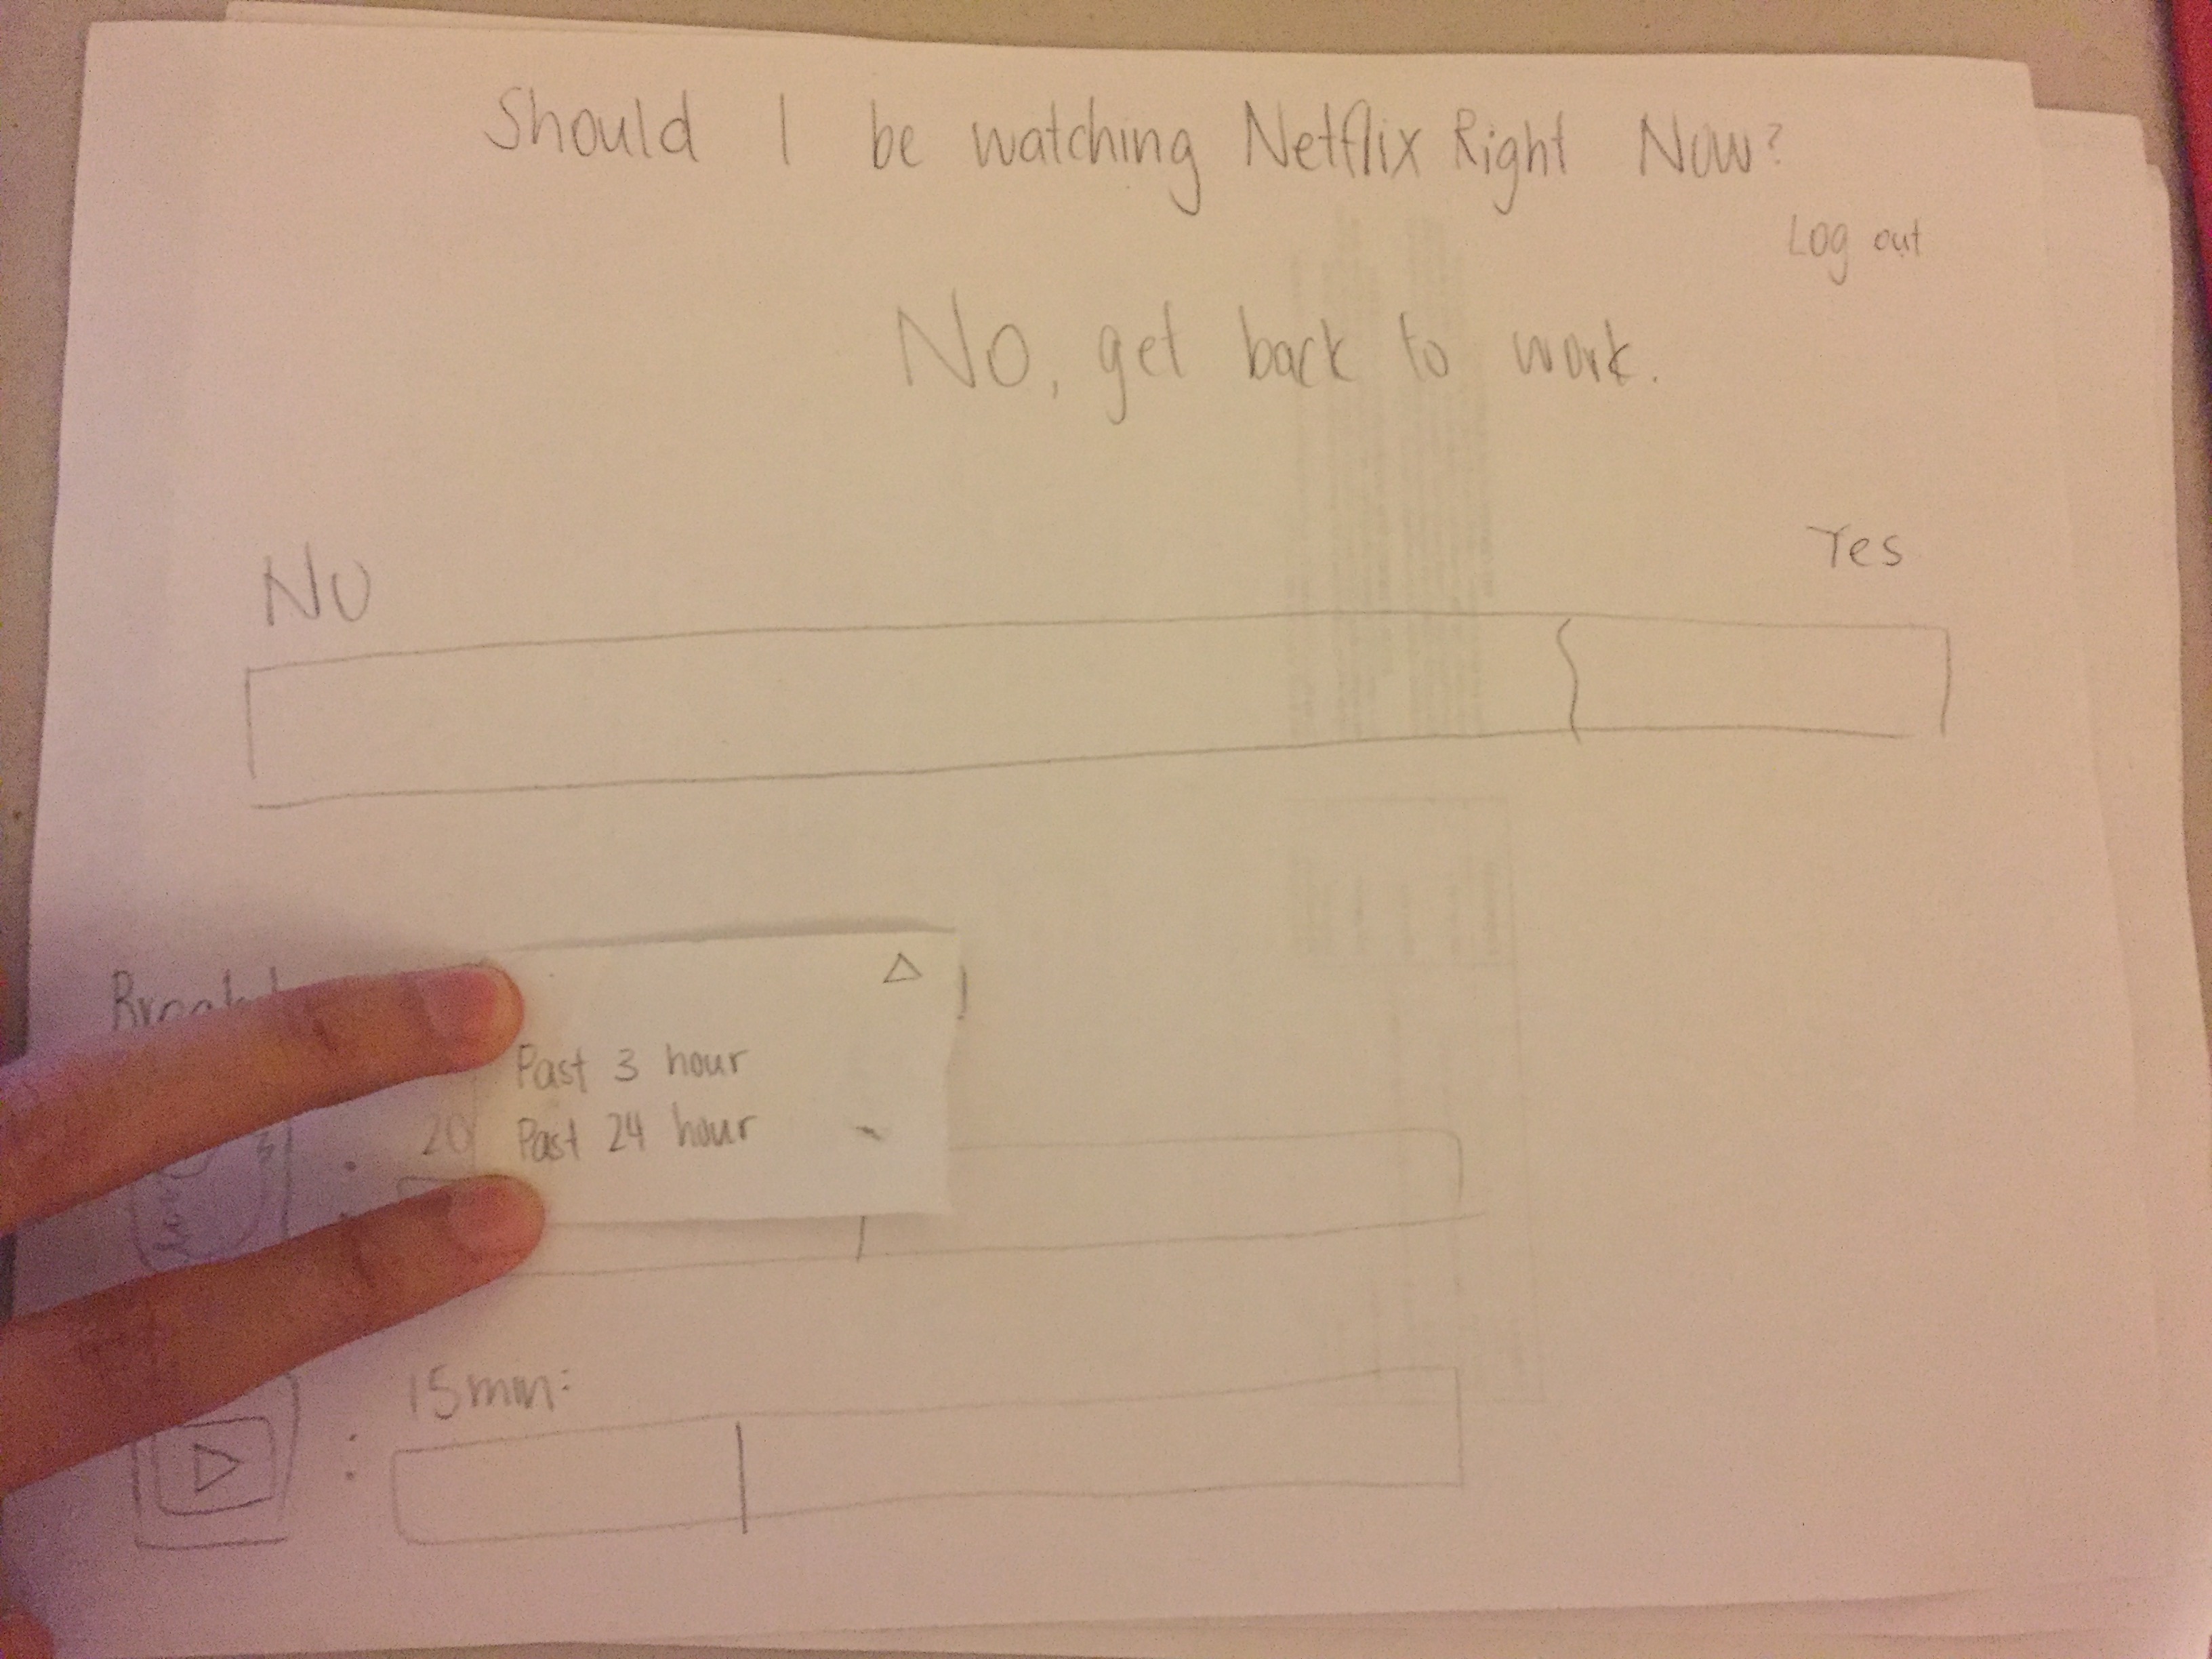 Should I be watching Netflix Right Now?
Log out
No, get back to work.
No
Yes
Past 3 hour
20
Past 24 hour
15min: